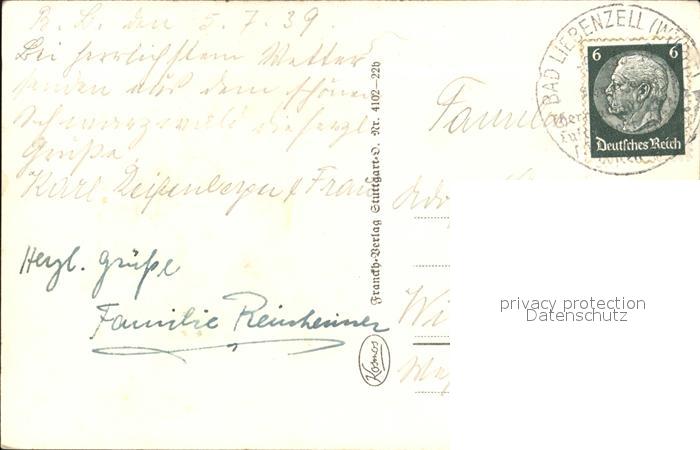 B. L. den 5. 7. 39.
Bei herrlichstem Wetter
senden aus dem schönen
Schwarzwald die herzl.
Grüße.
Karl
Frau
Herzl. Grüße
Familie Reinheimer
Franckh-Verlag Stuttgart-O. Nr. 4102-22b
Kosmos
BAD LIEBENZELL
6 6
Deutsches Reich
Famil
Wi
privacy protection
Datenschutz